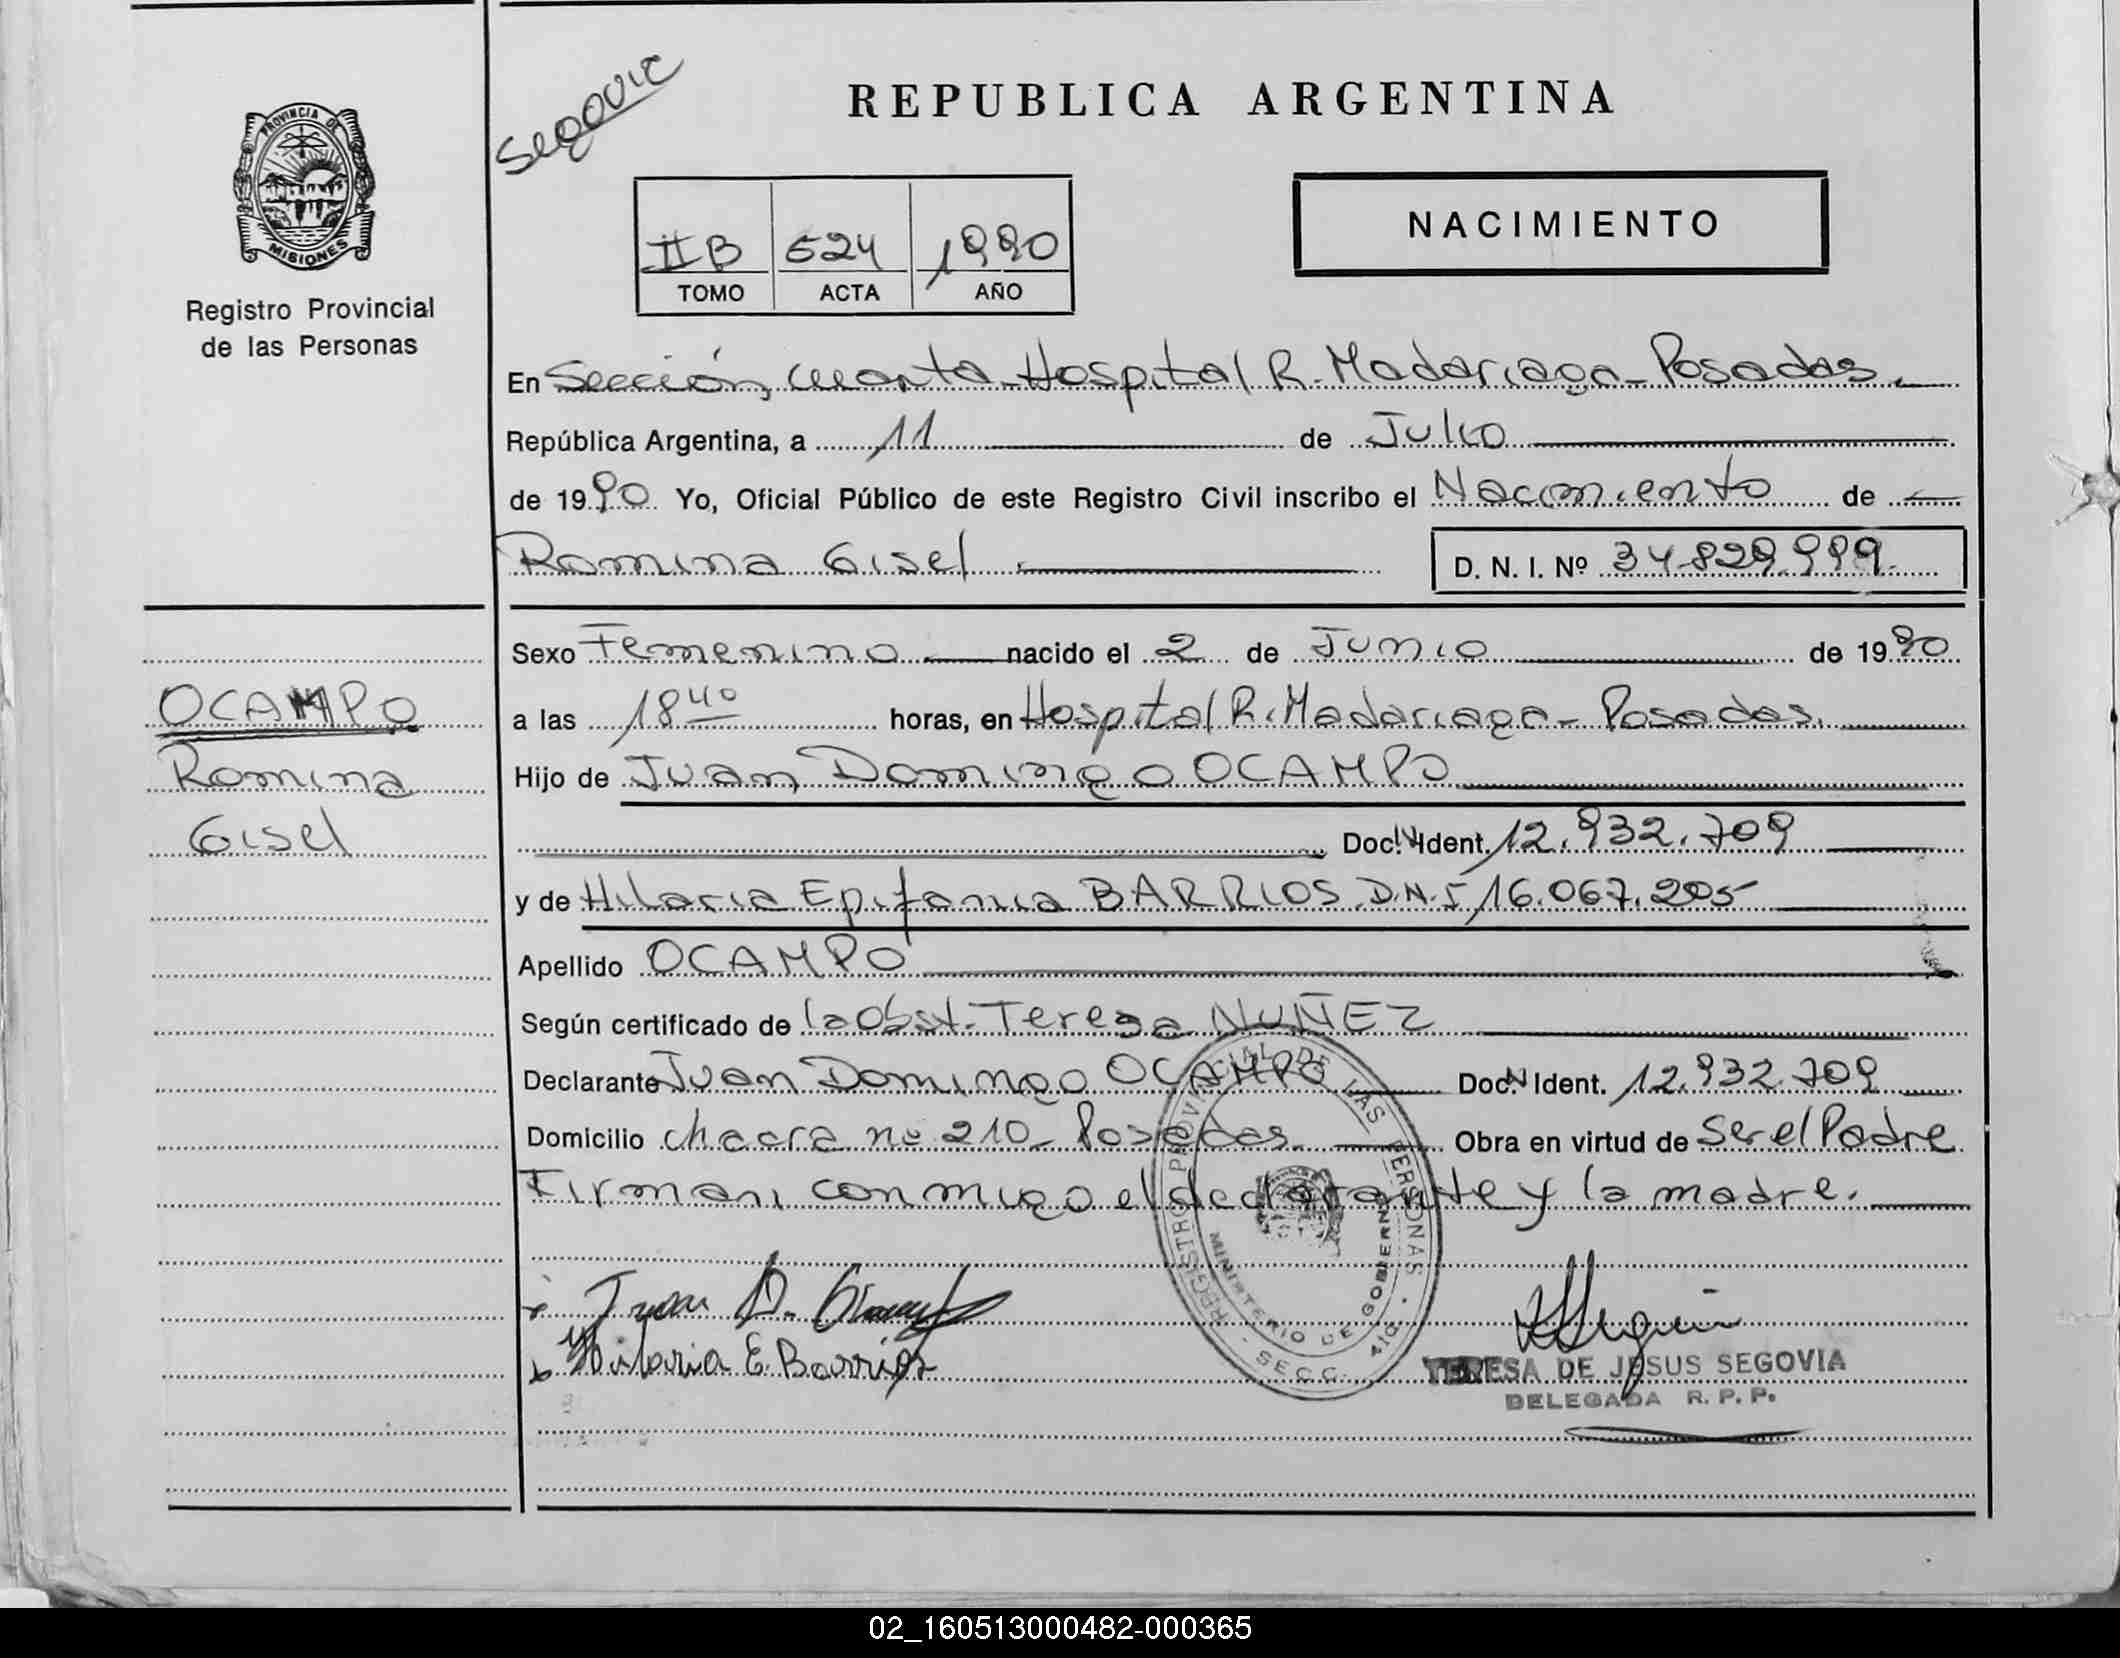 Segovic
REPUBLICA ARGENTINA
PROVINCIA DE
MISIONES
Registro Provincial
de las Personas
NACIMIENTO
II B 524 1990
TOMO ACTA AÑO
En Sección, cuarta-Hospital R. Madariaga-Posadas.
República Argentina, a 11 de Julio
de 1990 Yo, Oficial Público de este Registro Civil inscribo el Nacimiento de
Romina Gisel
D. N. I. Nº 34.829.999
Sexo Femenino nacido el 2 de Junio de 1990
a las 18⁴⁰ horas, en Hospital R. Madariaga-Posadas.
Hijo de Juan Domingo OCAMPO
Doc. N Ident. 12.932.709
y de Hilaria Epifania BARRIOS. D.N.I 16.067.205
Apellido OCAMPO
Según certificado de la Obst. Teresa NUÑEZ
Declarante Juan Domingo OCAMPO Doc. N Ident. 12.932.709
Domicilio chacra nº 210-Posadas. Obra en virtud de Ser el Padre
Firman, conmigo el declarante y la madre.
OCAMPO
Romina
Gisel
REGISTRO PROVINCIAL DE LAS PERSONAS
MINISTERIO DE GOBIERNO
SECC. 4ta
Juan D. Ocampo
Hilaria E. Barrios
TERESA DE JESUS SEGOVIA
DELEGADA R. P. P.
02_160513000482-000365